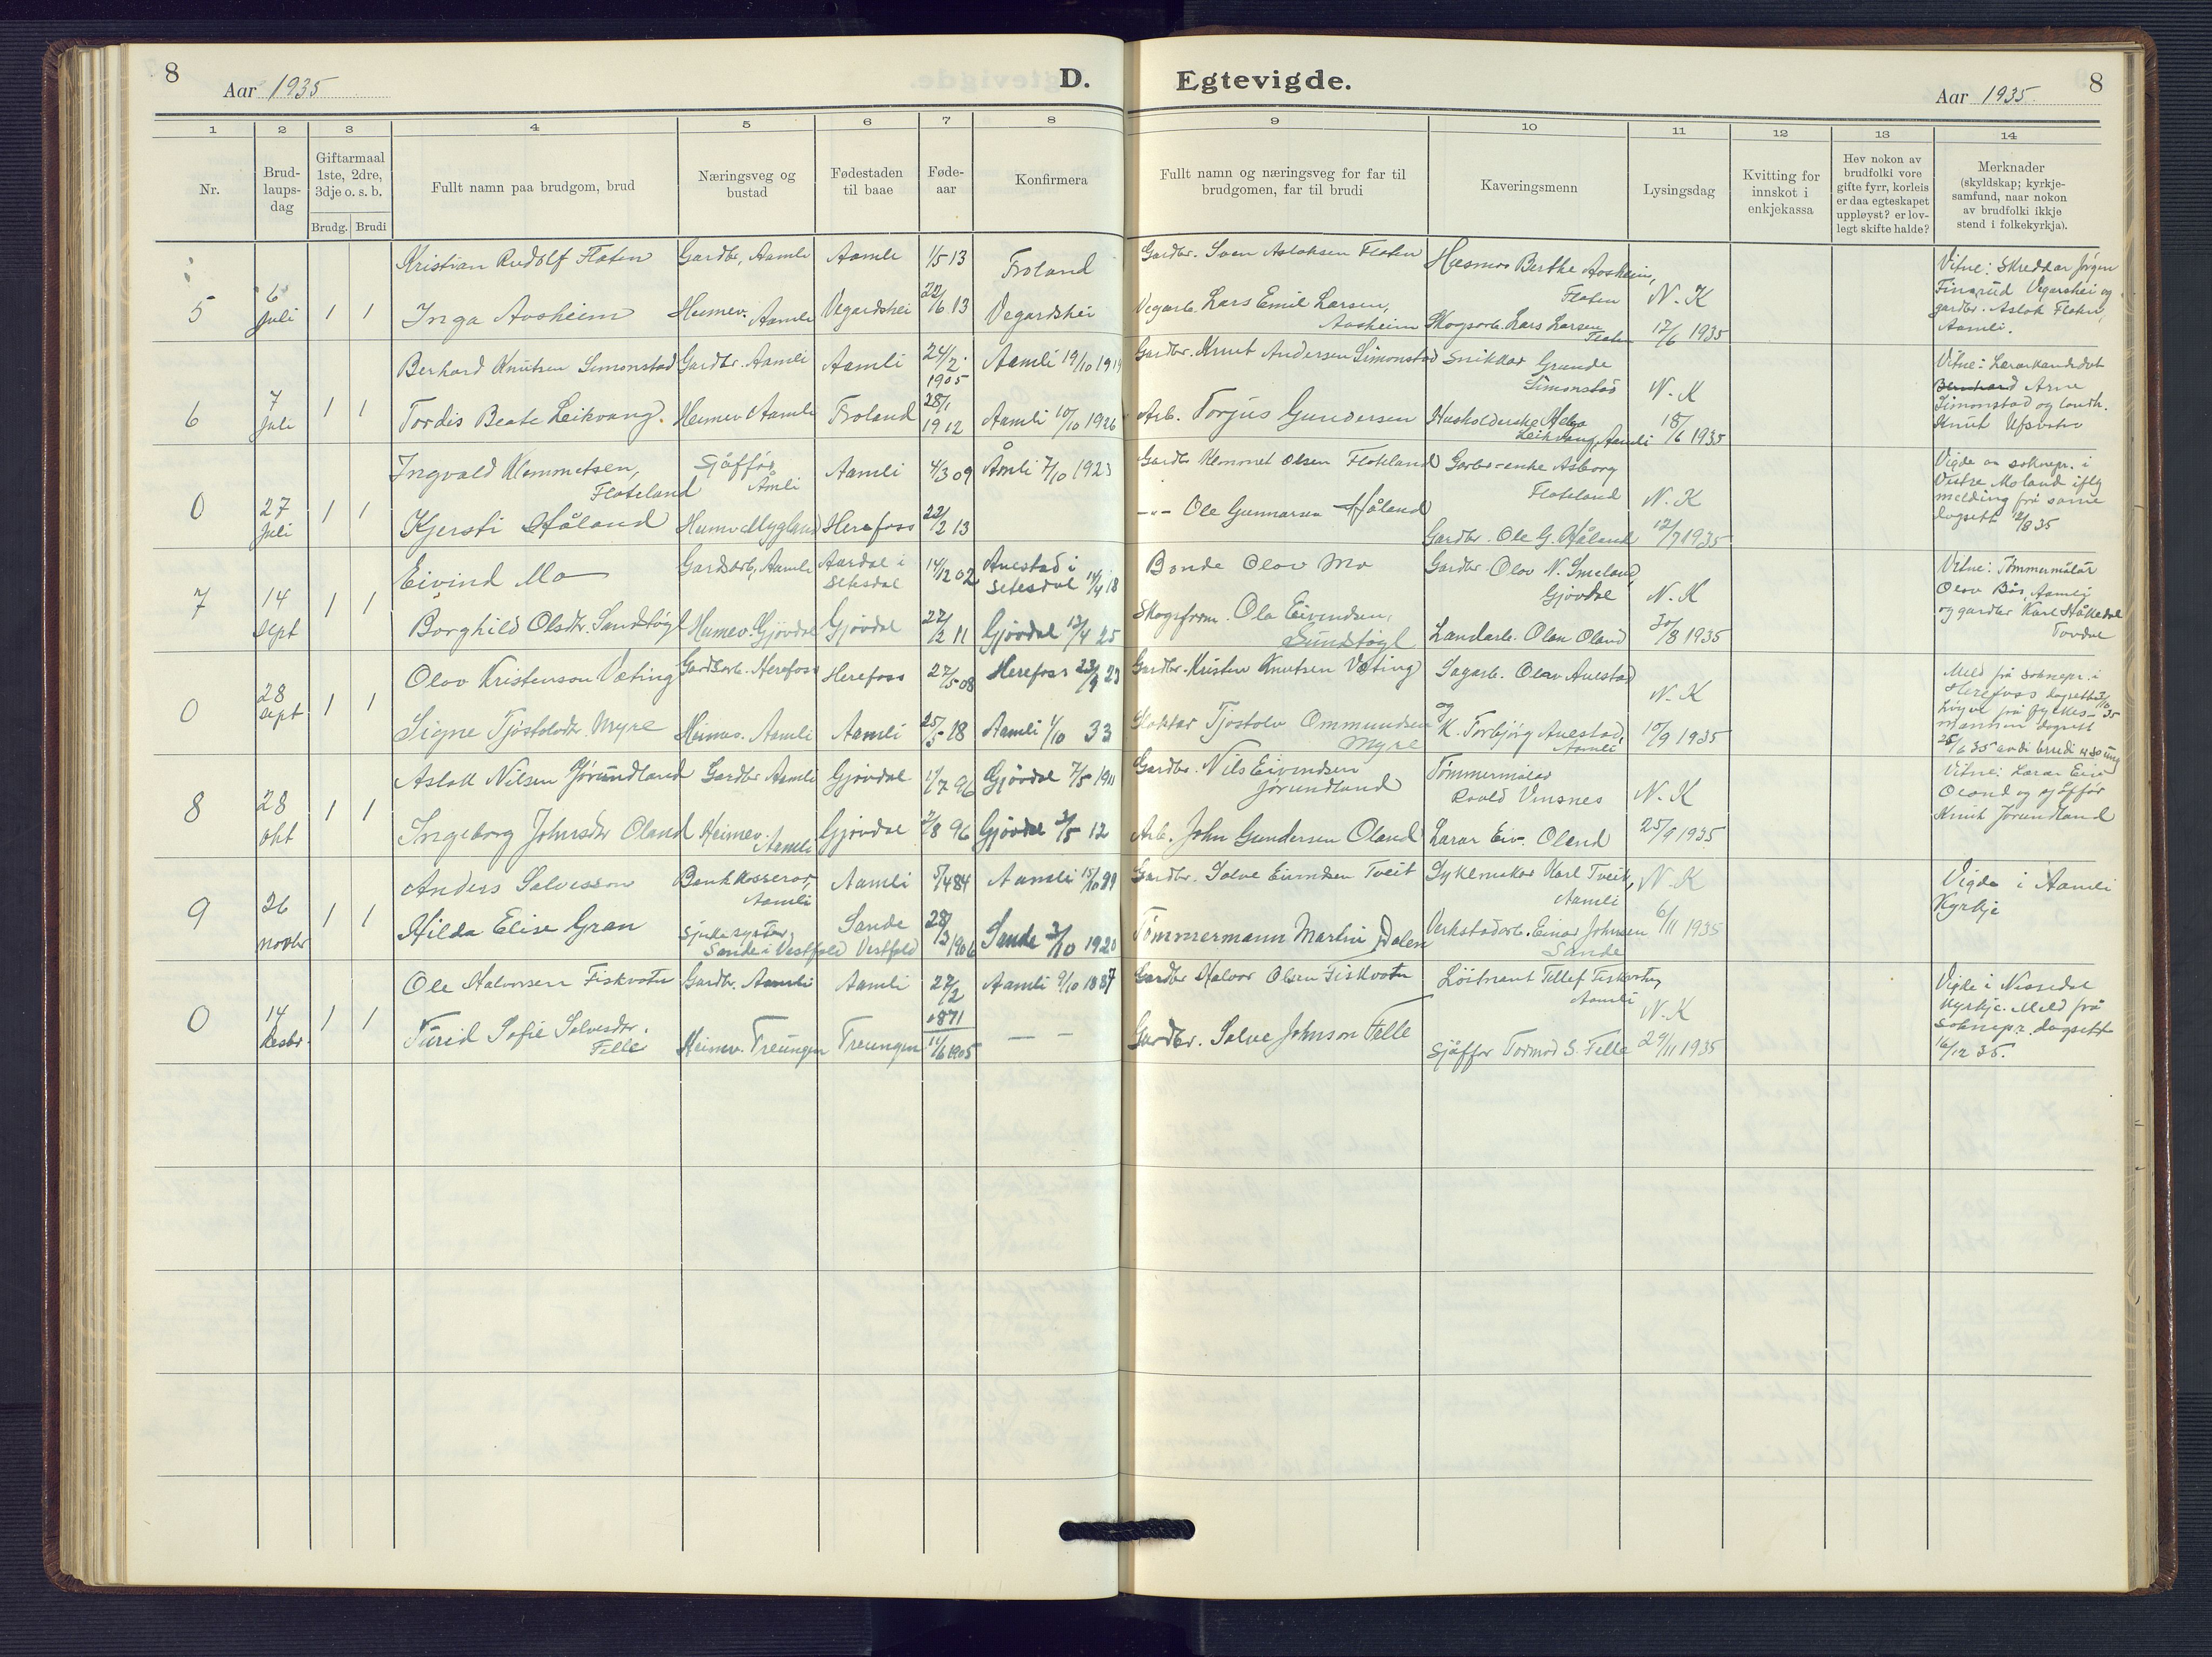 8
Aar 1935
D. Egtevigde.
Aar 1935.
8
1 2 3 4 5 6 7 8 9 10 11 12 13 14
Nr.
Brud-
laups-
dag
Giftarmaal
1ste, 2dre,
3dje o. s. b.
Brudg. Brudi
Fullt namn paa brudgom, brud
Næringsveg og
bustad
Fødestaden
til baae
Føde-
aar
Konfirmera
Fullt namn og næringsveg for far til
brudgomen, far til brudi
Kaveringsmenn
Lysingsdag
Kvitting for
innskot i
enkjekassa
Hev nokon av
brudfolki vore
gifte fyrr, korleis
er daa egteskapet
uppløyst? er lov-
legt skifte halde?
Merknader
(skyldskap; kyrkje-
samfund, naar nokon
av brudfolki ikkje
stend i folkekyrkja).
5
6
juli
1 1
Kristian Rudolf Flaten
Gardbr, Aamli
Aamli
1/5 13
Froland
Gardbr. Sven Aslaksen Flaten
Berthe Aasheim,
Flaten
N. K
Vitne: Skreddar Jørgen
Finsrud Vegarshei og
gardbr. Aslak Flaten,
Aamli.
Inga Aasheim
Heimev. Aamli
Vegardshei
22/6 13
Vegardshei
Vegarb. Lars Emil Larsen,
Aasheim
Skogsarb. Lars Larsen
Flaten
17/6 1935
6
7
juli
1 1
Berhard Knutsen Simonstad
Gardbr. Aamli
Aamli
24/2
1905
Aamli 19/10 1919
Gardbr. Knut Andersen Simonstad
Snikkar Grunde
Simonstad
N. K
Vitne: Lærarkandidat
Bernhard Arne
Simonstad og
Knut Ufsvatn
Tordis Beate Leikvang.
Heimev Aamli
Froland
28/1
1912
Aamli 10/10 1926
Arb. Torjus Gundersen
Husholderske Helga
Leikvang, Aamli
18/6 1935
0
27
juli
1 1
Ingvald Klemmetsen,
Flateland
Sjåffør
Åmli
Aamli
4/3 09
Åmli 7/10 1923
Gardbr Klemmet Olsen Flateland
Gardbr-enke Asborg
Flateland
N. K
Vigde av soknepr. i
Vestre Moland iflg
melding frå same
dagsett 12/8 35
Kjersti Håland
Heimev Mygland
Herefoss
22/2 13
-"- Ole Gunnarsen Håland
Gardbr. Ole G. Håland
12/7 1935
7
14
sept
1 1
Eivind Mo
Gardsarb, Aamli
Aardal i
Setesdal
14/12 02
Austad i
Setesdal 14/4 18
Bonde Olav Mo
Gardbr. Olav N. Smeland,
Gjøvdal
N. K
Vitne: Tømmermålar
Olav Bås, Aamli
og gardbr Karl Håkedal
Tovdal
Borghild Olsdtr. Sundtøyl
Heimev. Gjøvdal
Gjøvdal
27/2 11
Gjøvdal 12/4 25
Skogsform. Ola Eivindsen,
Sundtøyl
Landarb. Olav Oland
30/8 1935
0
28
sept
1 1
Olav Kristenson Væting
Gardsarb. Herefoss
Herefoss
27/5 08
Herefoss 23/9 23
Gardbr. Kristen Knutsen Væting
Sagarb. Olav Auestad
og
N. K
Meld frå soknepr. i
Herefoss dagsett 2/10 35
Løyve frå fylkes-
mannen dagsett
Signe Tjøstolvdtr. Myre
Heimev. Aamli
Aamli
25/5 18
Aamli 1/10 33
Tjøstolv Ommundsen
Myre
K. Torbjørg Auestad,
Aamli
10/9 1935
8
28
okt
1 1
Aslak Nilsen Jørundland
Gardbr Aamli
Gjøvdal
17/7 96
Gjøvdal 7/5 1911
Gardbr. Nils Eivindsen
Jørundland
Tømmermålar
Roald Vinsnes
N. K
Vitne: Lærar Eiv.
Oland og sjåffør
Knut Jørundland
Ingeborg Johnsdtr Oland
Heimev. Aamli
Gjøvdal
2/8 96
Gjøvdal 3/5 12
Arb. John Gundersen Oland
Lærar Eiv. Oland
25/9 1935
9
26
novbr
1 1
Anders Salvesson
Bankkasserar,
Aamli
Aamli
5/4 84
Aamli 15/10 99
Gardbr. Salve Eivindsen Tveit
Sykkelmakar Karl Tveit,
Aamli
N. K
Vigde i Aamli
Kyrkje
Hilda Elise Gran
Sjukesyster,
Sande i Vestfold
Sande
Vestfold
28/3 1906
Sande 3/10 1920
Tømmermann Martin Dalen
Verkstadarb. Einar Johnsen
Sande
6/11 1935
0
14
desbr.
1 1
Ole Halvorsen Fiskvatn
Gardbr. Aamli
Aamli
27/2
1871
Aamli 9/10 1887
Gardbr Halvor Olsen Fiskvatn
Løitnant Tellef Fiskvatn,
Aamli
N. K
Vigde i Nissedal
Kyrkje. Meld frå
soknepr. dagsett
16/12 35.
Turid Sofie Salvesdtr.
Felle
Heimev. Treungen
Treungen
11/6 1905
—
Gardbr. Salve Johnson Felle
Sjåffør Tormod S. Felle
29/11 1935